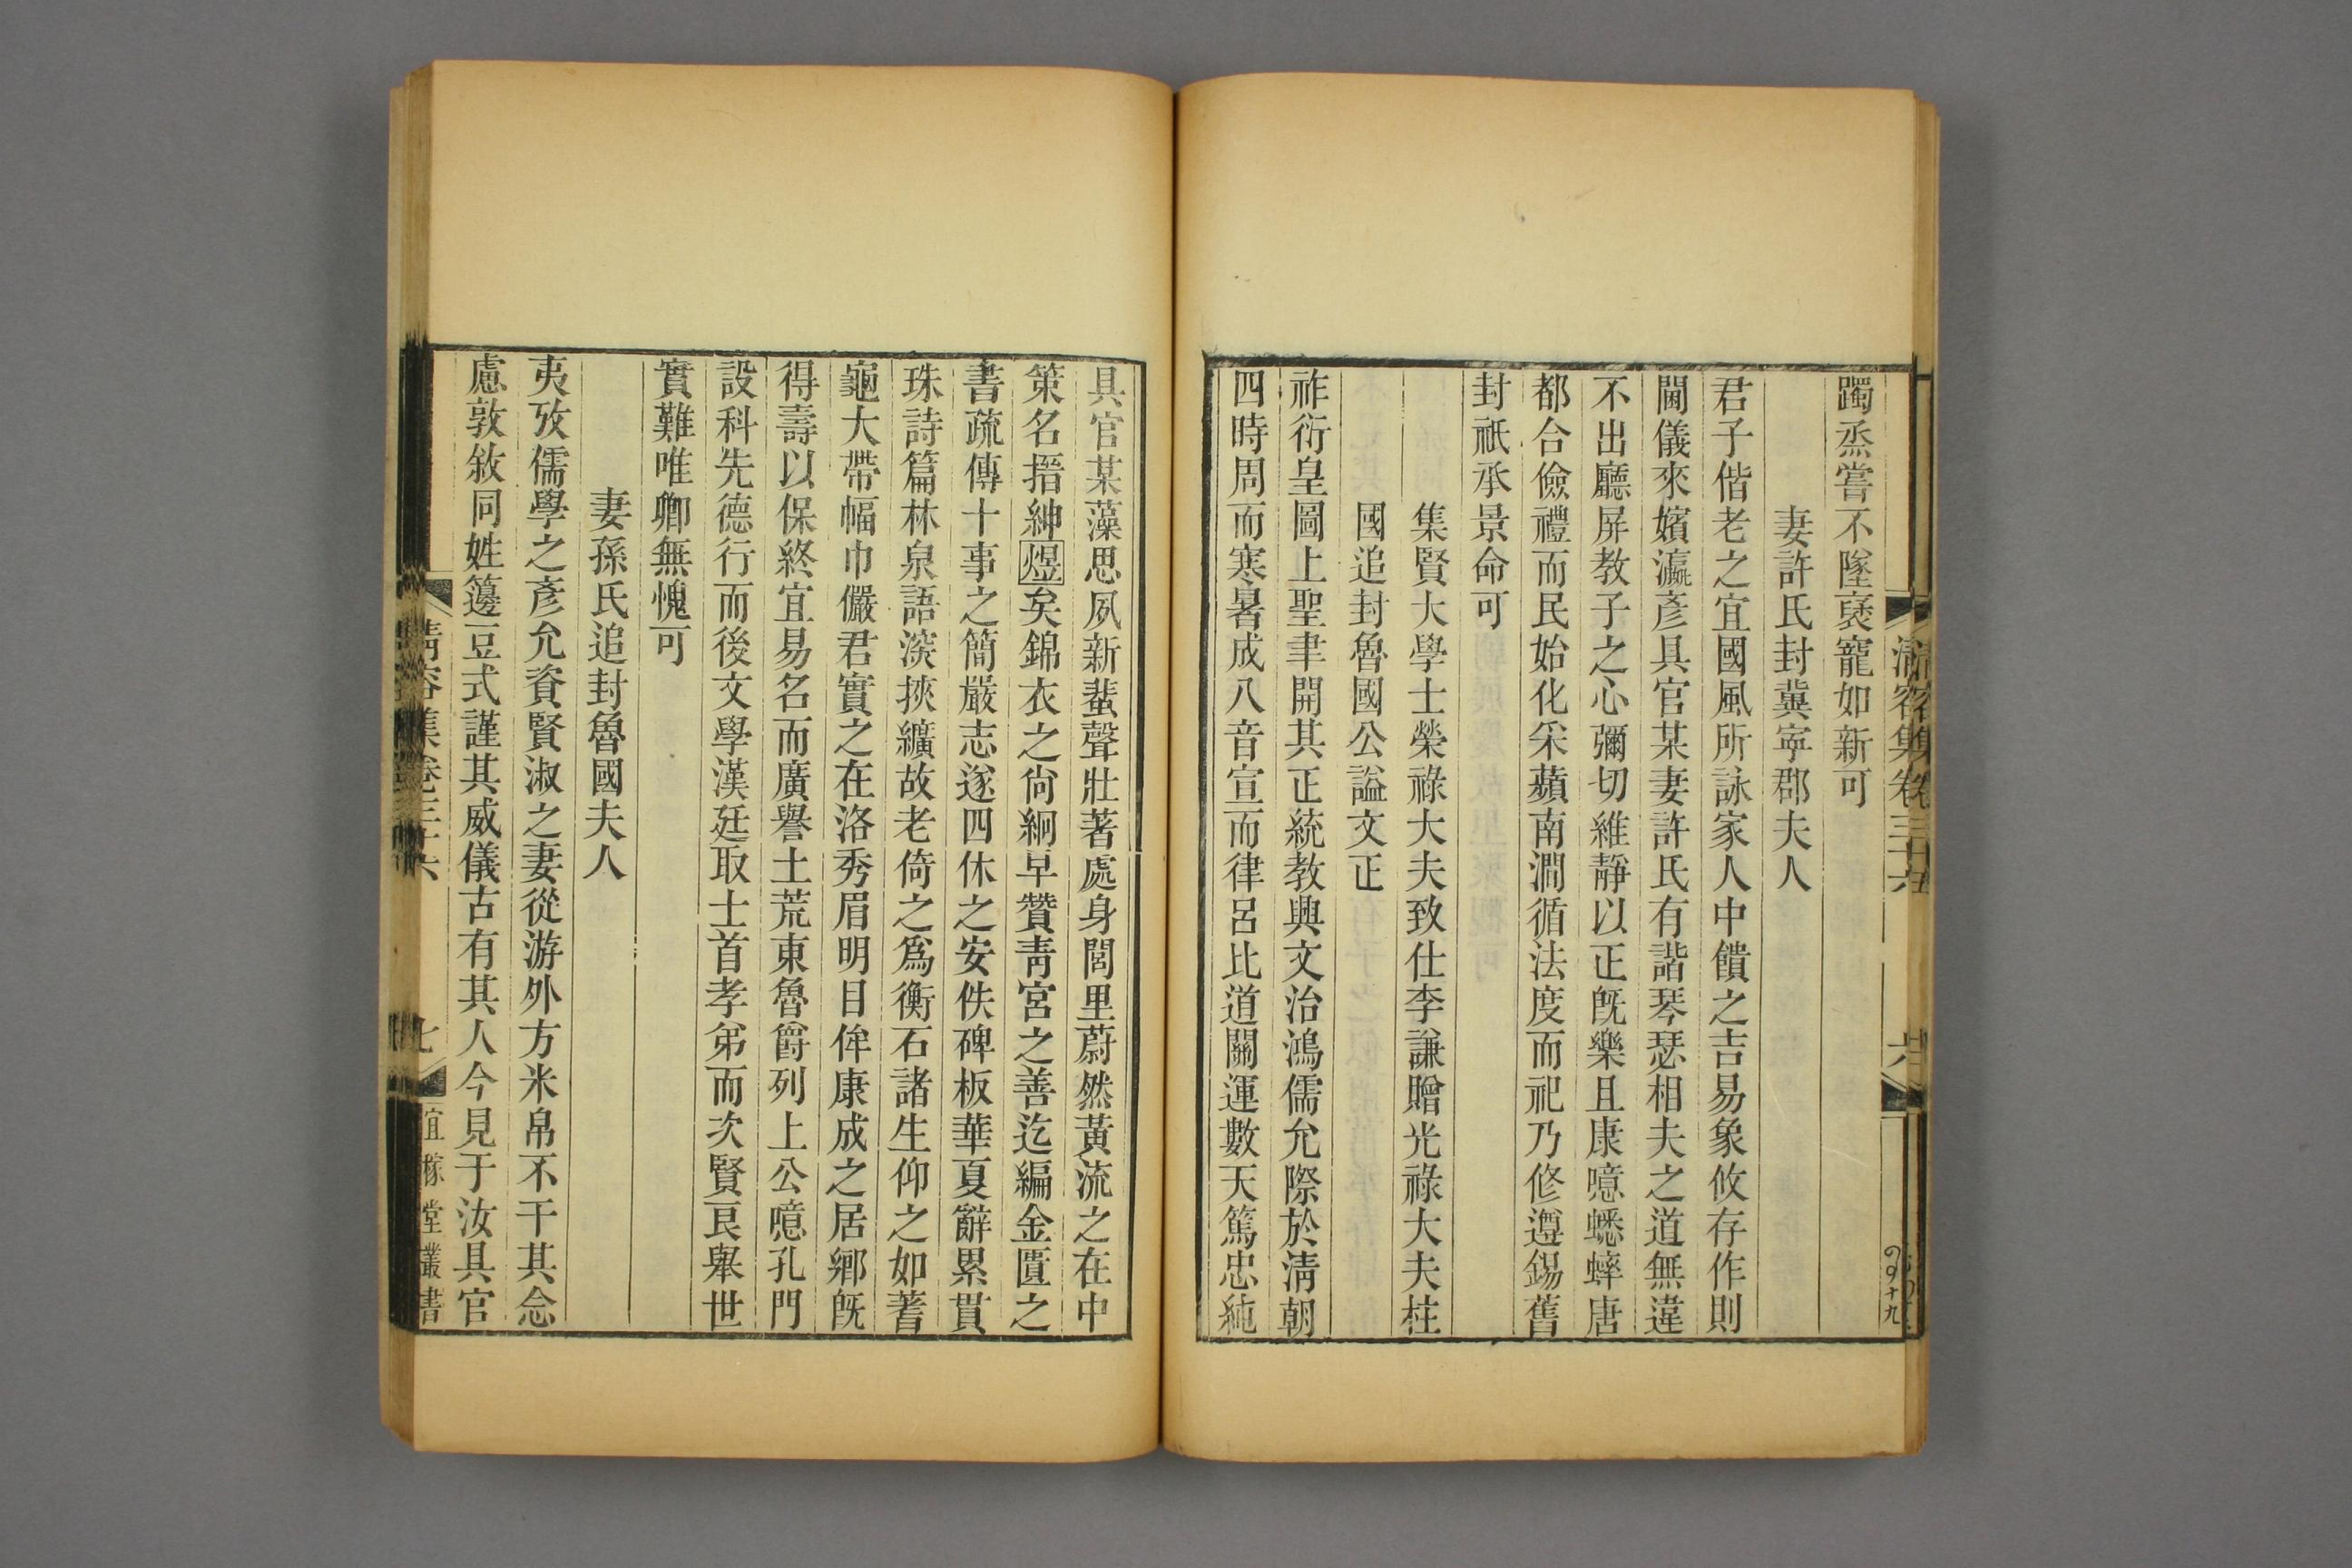 躅烝嘗不墜襃寵如新可
妻許氏封冀寧郡夫人
君子偕老之宜國風所詠家人中饋之吉易象攸存作則
閫儀來嬪瀛彥具官某妻許氏有諧琴瑟相夫之道無違
不出廳屏教子之心彌切維靜以正旣樂且康噫蟋蟀唐
都合儉禮而民始化采蘋南澗循法度而祀乃修遵錫舊
封祇承景命可
集賢大學士榮祿大夫致仕李謙贈光祿大夫柱
國追封魯國公謚文正
祚衍皇圖上聖聿開其正統教興文治鴻儒允際於淸朝
四時周而寒暑成八音宣而律呂比道關運數天篤忠純
具官某藻思夙新蜚聲壯著處身閭里蔚然黃流之在中
策名搢紳煜矣錦衣之尙絅早贊靑宮之善迄編金匱之
書疏傳十事之簡嚴志遂四休之安佚碑板華夏辭累貫
珠詩篇林泉語滾挾纊故老倚之爲衡石諸生仰之如蓍
龜大帶幅巾儼君實之在洛秀眉明目侔康成之居鄉旣
得壽以保終宜易名而廣譽土荒東魯爵列上公噫孔門
設科先德行而後文學漢廷取士首孝弟而次賢良舉世
實難唯卿無愧可
妻孫氏追封魯國夫人
夷攷儒學之彥允資賢淑之妻從游外方米帛不干其念
慮敦敘同姓籩豆式謹其威儀古有其人今見于汝具官
淸容集卷三十六
七
宜稼堂叢書